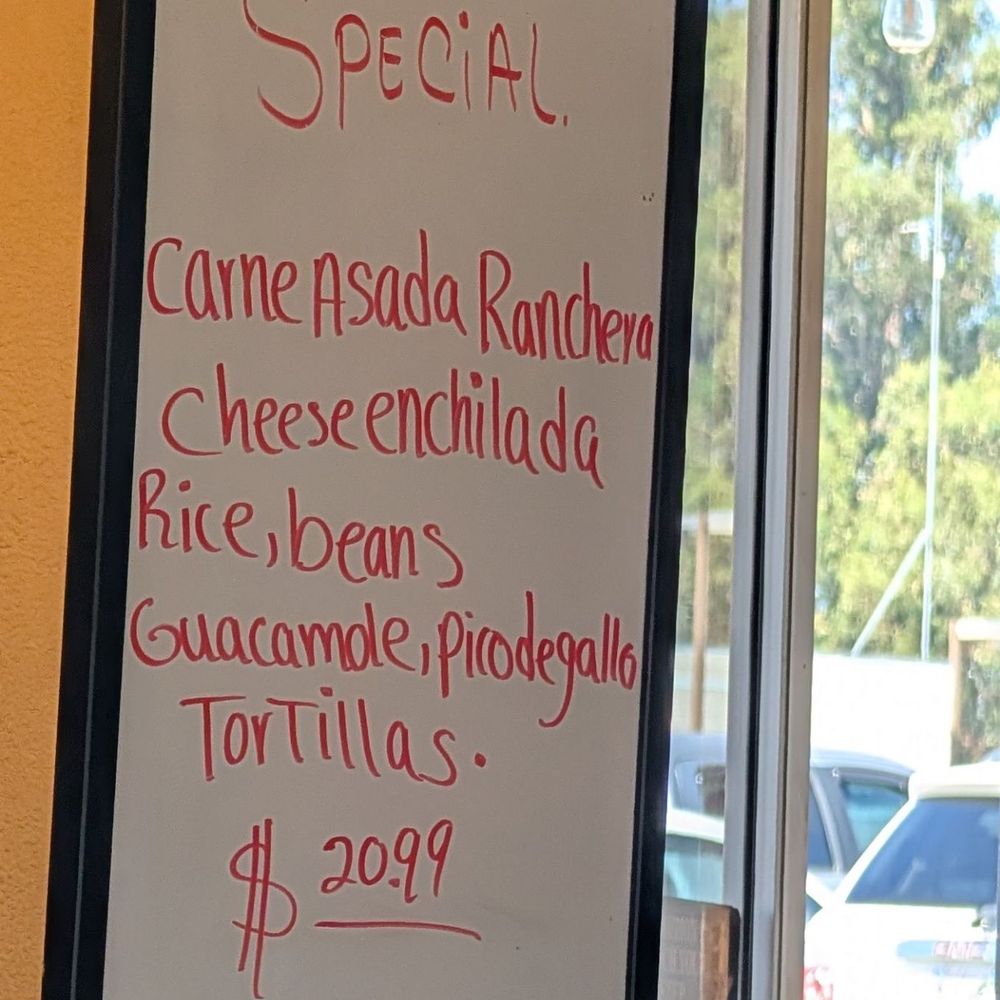 SPECiAL.
Carne Asada Ranchera
cheese enchilada
Rice, beans
Guacamole, pico de gallo
TorTillas.
$ 20.99